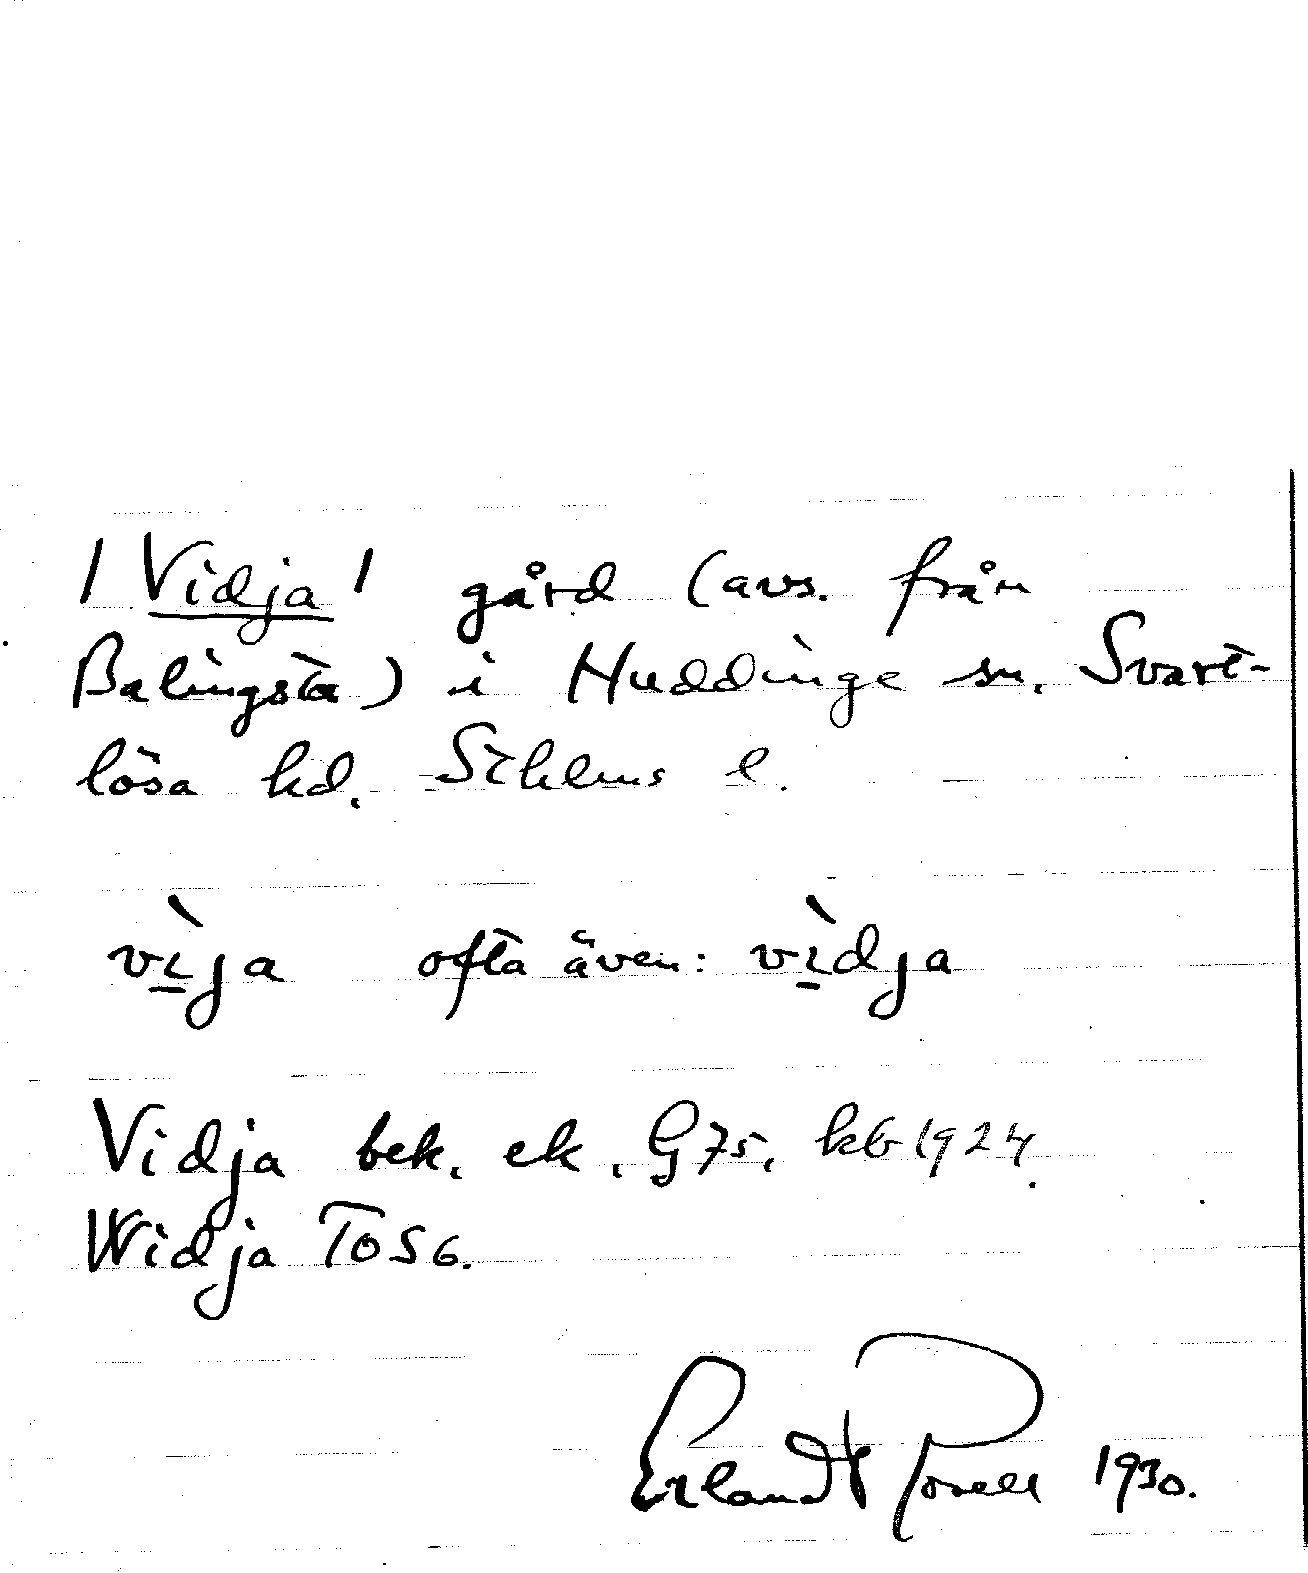 / Vidja / gård (avs. från
Balingsta) i Huddinge sn. Svart-
lösa hd. Sthlms l.
vı̱̀ja ofta även: vı̱̀dja
Vidja bek. ek. G75, kb 1924.
Widja To 56.
Erlandt Rosell 1930.